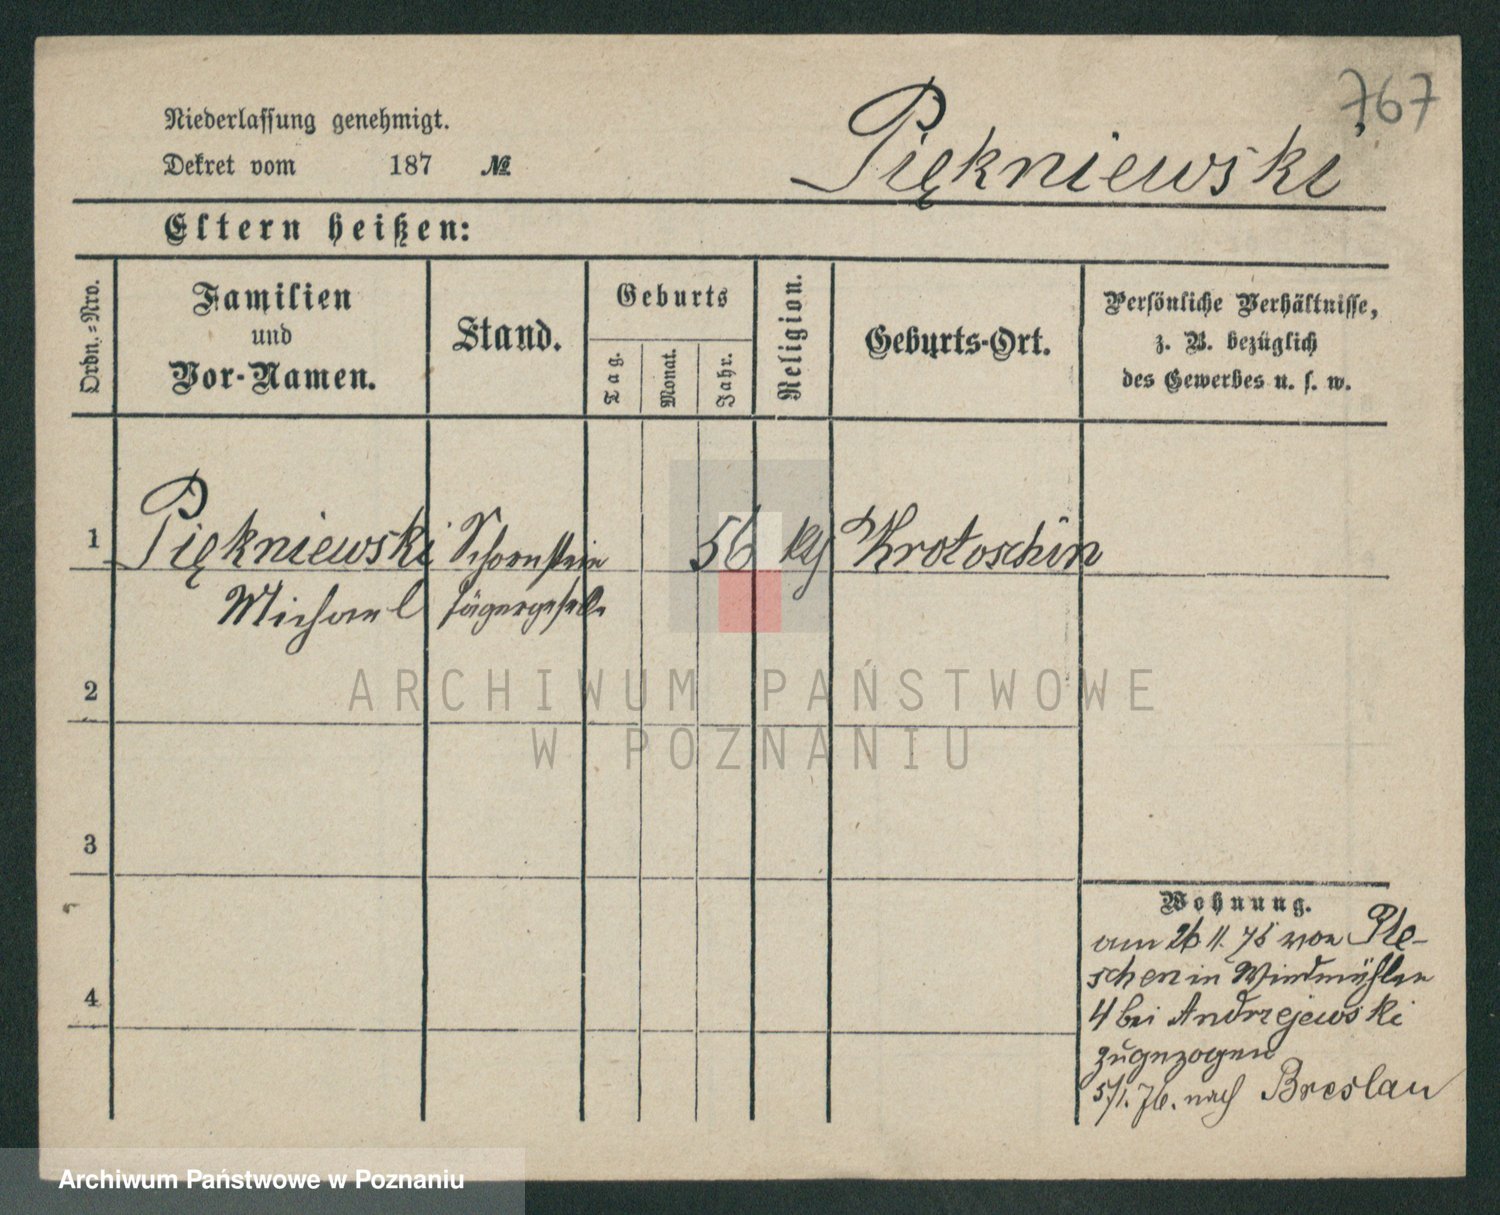 767
Niederlassung genehmigt.
Dekret vom 187 №
Piękniewski
Eltern heißen:
Ordn.-Nro.
Familien
und
Vor-Namen.
Stand.
Geburts
Tag.
Monat.
Jahr.
Religion.
Geburts-Ort.
Persönliche Verhältnisse,
z. B. bezüglich
des Gewerbes u. s. w.
1 Piękniewski Schornstein 56 kth Krotoschin
Michael fägergeselle
ARCHIWUM PAŃSTWOWE
W POZNANIU
2
3
4
Wohnung.
am 26 11. 75 von Ple-
schen in Windmühlen
4 bei Andrzejewski
zugezogen
5/1. 76. nach Breslau
Archiwum Państwowe w Poznaniu